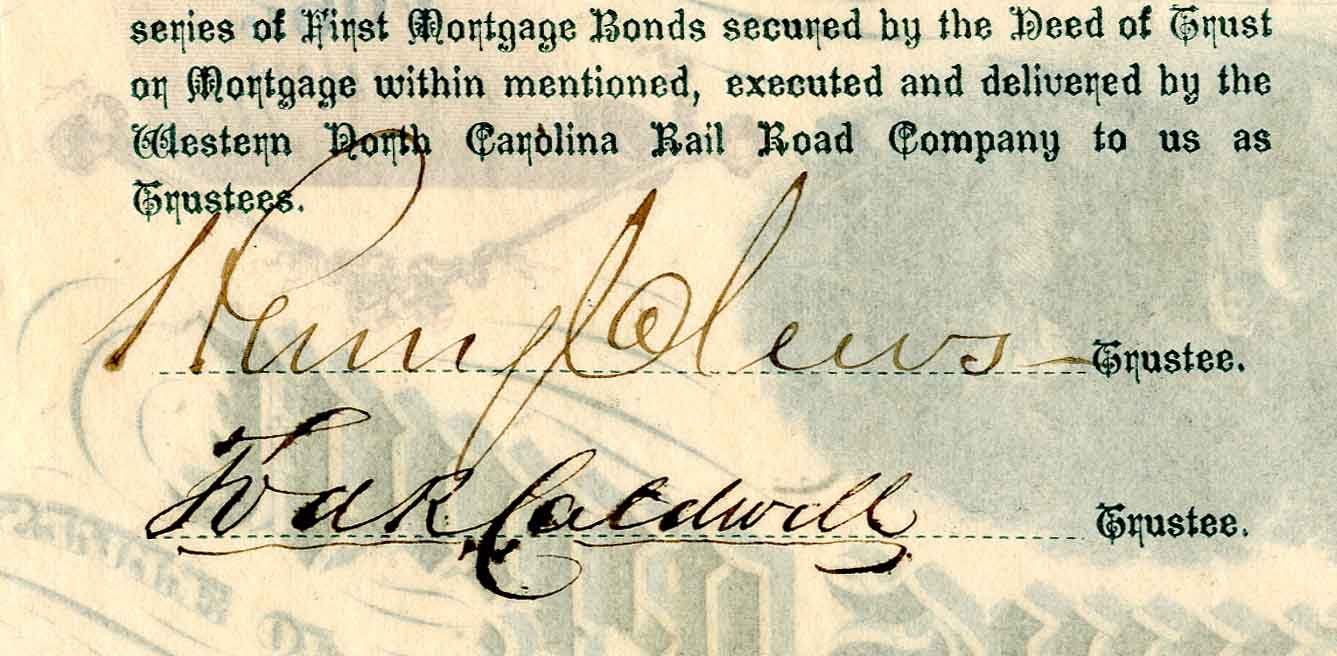 series of First Mortgage Bonds secured by the Deed of Trust
or Mortgage within mentioned, executed and delivered by the
Western North Carolina Rail Road Company to us as
Trustees.
Henry Clews Trustee.
Tod R Caldwell Trustee.